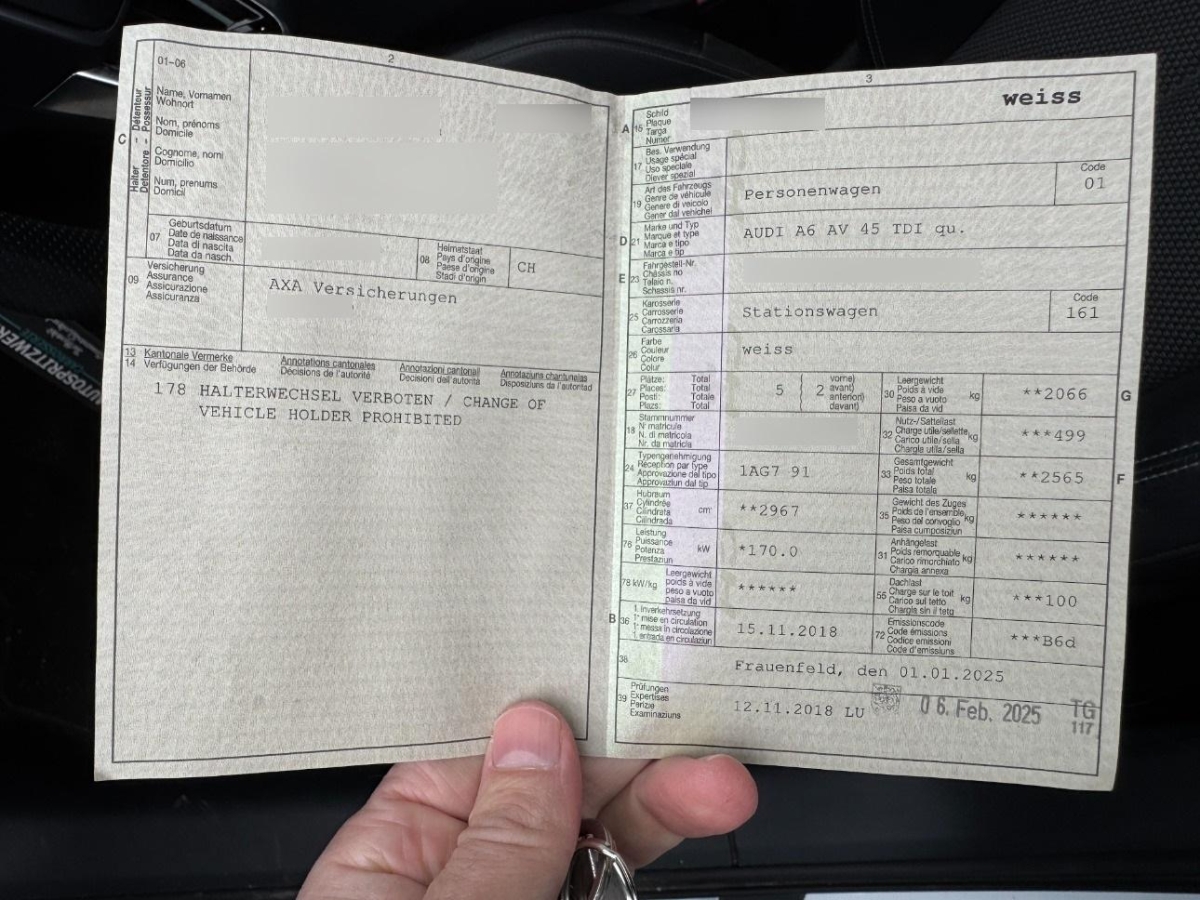 2
01-06
C
Halter – Détenteur
Detentore – Possessur
Name, Vornamen
Wohnort
Nom, prénoms
Domicile
Cognome, nomi
Domicilio
Num, prenums
Domicil
07
Geburtsdatum
Date de naissance
Data di nascita
Data da nasch.
08
Heimatstaat
Pays d'origine
Paese d'origine
Stadi d'origin
CH
09
Versicherung
Assurance
Assicurazione
Assicuranza
AXA Versicherungen
13 Kantonale Vermerke Annotations cantonales Annotazioni cantonali Annotaziuns chantunalas
14 Verfügungen der Behörde Décisions de l'autorité Decisioni dell'autorità Disposiziuns da l'autoritad
178 HALTERWECHSEL VERBOTEN / CHANGE OF
VEHICLE HOLDER PROHIBITED
3
weiss
A
15
Schild
Plaque
Targa
Numer
17
Bes. Verwendung
Usage spécial
Uso speciale
Diever spezial
19
Art des Fahrzeugs
Genre de véhicule
Genere di veicolo
Gener dal vehichel
Personenwagen
Code
01
D
21
Marke und Typ
Marque et type
Marca e tipo
Marca e tip
AUDI A6 AV 45 TDI qu.
E
23
Fahrgestell-Nr.
Châssis no
Telaio n.
Schassis nr.
25
Karosserie
Carrosserie
Carrozzeria
Carossaria
Stationswagen
Code
161
26
Farbe
Couleur
Colore
Colur
weiss
27
Plätze: Total
Places: Total
Posti: Totale
Plazs: Total
5
2
vorne)
avant)
anteriori)
davant)
30
Leergewicht
Poids à vide
Peso a vuoto
Paisa da vid
kg
**2066
G
18
Stammnummer
N° matricule
N. di matricola
Nr. da matricla
32
Nutz-/Sattellast
Charge utile/sellette
Carico utile/sella
Chargia utila/sella
kg
***499
24
Typengenehmigung
Réception par type
Approvazione del tipo
Approvaziun dal tip
1AG7 91
33
Gesamtgewicht
Poids total
Peso totale
Paisa totala
kg
**2565
F
37
Hubraum
Cylindrée
Cilindrata
Cilindrada
cm³
**2967
35
Gewicht des Zuges
Poids de l'ensemble
Peso del convoglio
Paisa cumposiziun
kg
******
76
Leistung
Puissance
Potenza
Prestaziun
kW
*170.0
31
Anhängelast
Poids remorquable
Carico rimorchiato
Chargia annexa
kg
******
78 kW/kg
Leergewicht
poids à vide
peso a vuoto
paisa da vid
******
55
Dachlast
Charge sur le toit
Carico sul tetto
Chargia sin il tetg
kg
***100
B
36
1. Inverkehrsetzung
1re mise en circulation
1a messa in circolazione
1. entrada en circulaziun
15.11.2018
72
Emissionscode
Code émissions
Codice emissioni
Code d'emissiuns
***B6d
38
Frauenfeld, den 01.01.2025
39
Prüfungen
Expertises
Perizie
Examinaziuns
12.11.2018 LU
06. Feb. 2025
TG
117